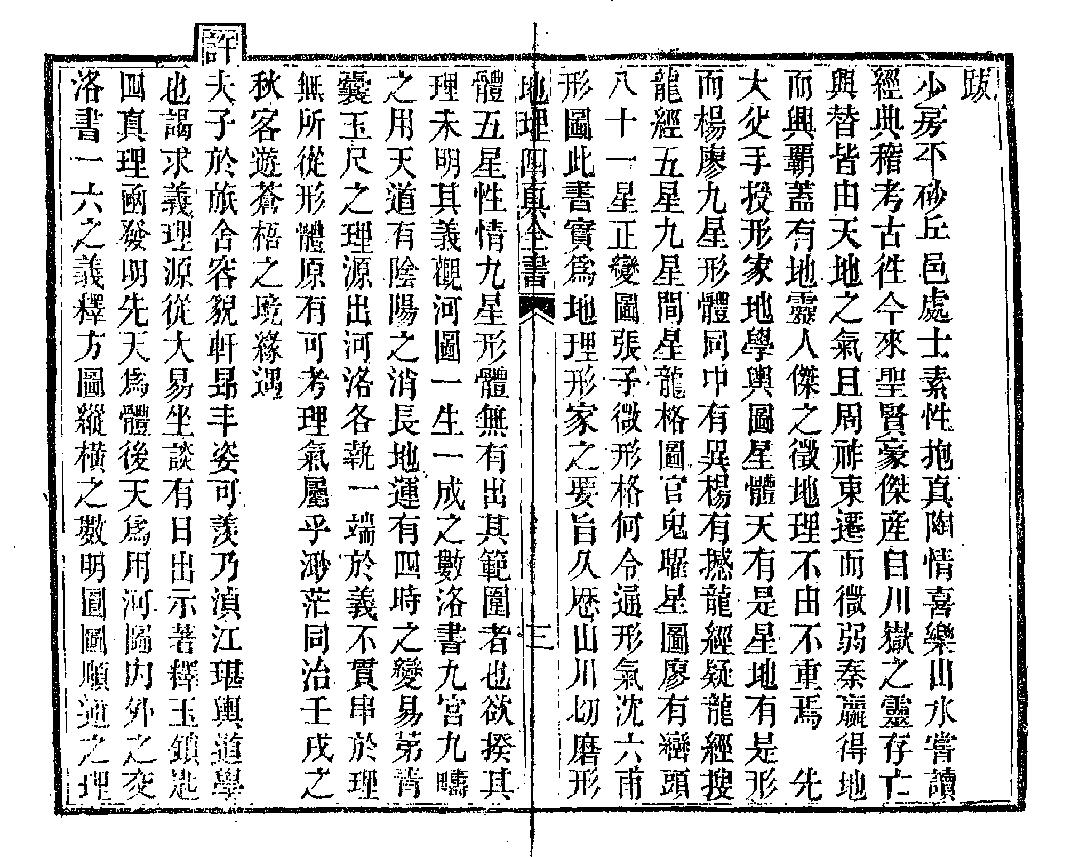 跋
少房不敏丘邑處士素性抱真陶情喜樂山水嘗讀
經典稽考古徃今來聖賢豪傑産自川嶽之靈存亡
興替皆由天地之氣且周祚東遷而微弱秦灑得地
而興覇蓋有地靈人傑之徵地理不由不重焉　先
大父手授形家地學輿圖星體天有是星地有是形
而楊廖九星形體同中有異楊有撼龍經疑龍經搜
龍經五星九星間星龍格圖官鬼曜星圖廖有巒頭
八十一星正變圖張子微形格何令通形氣沈六甫
形圖此書實爲地理形家之要旨久歷山川切磨形
地理四真全書
三
體五星性情九星形體無有出其範圍者也欲揆其
理未明其義觀河圖一生一成之數洛書九宮九疇
之用天道有陰陽之消長地運有四時之變易第青
囊玉尺之理源出河洛各執一端於義不貫串於理
無所從形體原有可考理氣屬乎渺茫同治壬戌之
秋客遊蒼梧之境緣遇
許夫子於旅舍容貌軒昂丰姿可羨乃滇江堪輿道學
也謁求義理源從大易坐談有日出示著釋玉鎖匙
四真理函發明先天爲體後天爲用河圖內外之交
洛書一六之義釋方圖縱橫之數明圓圖順逆之理